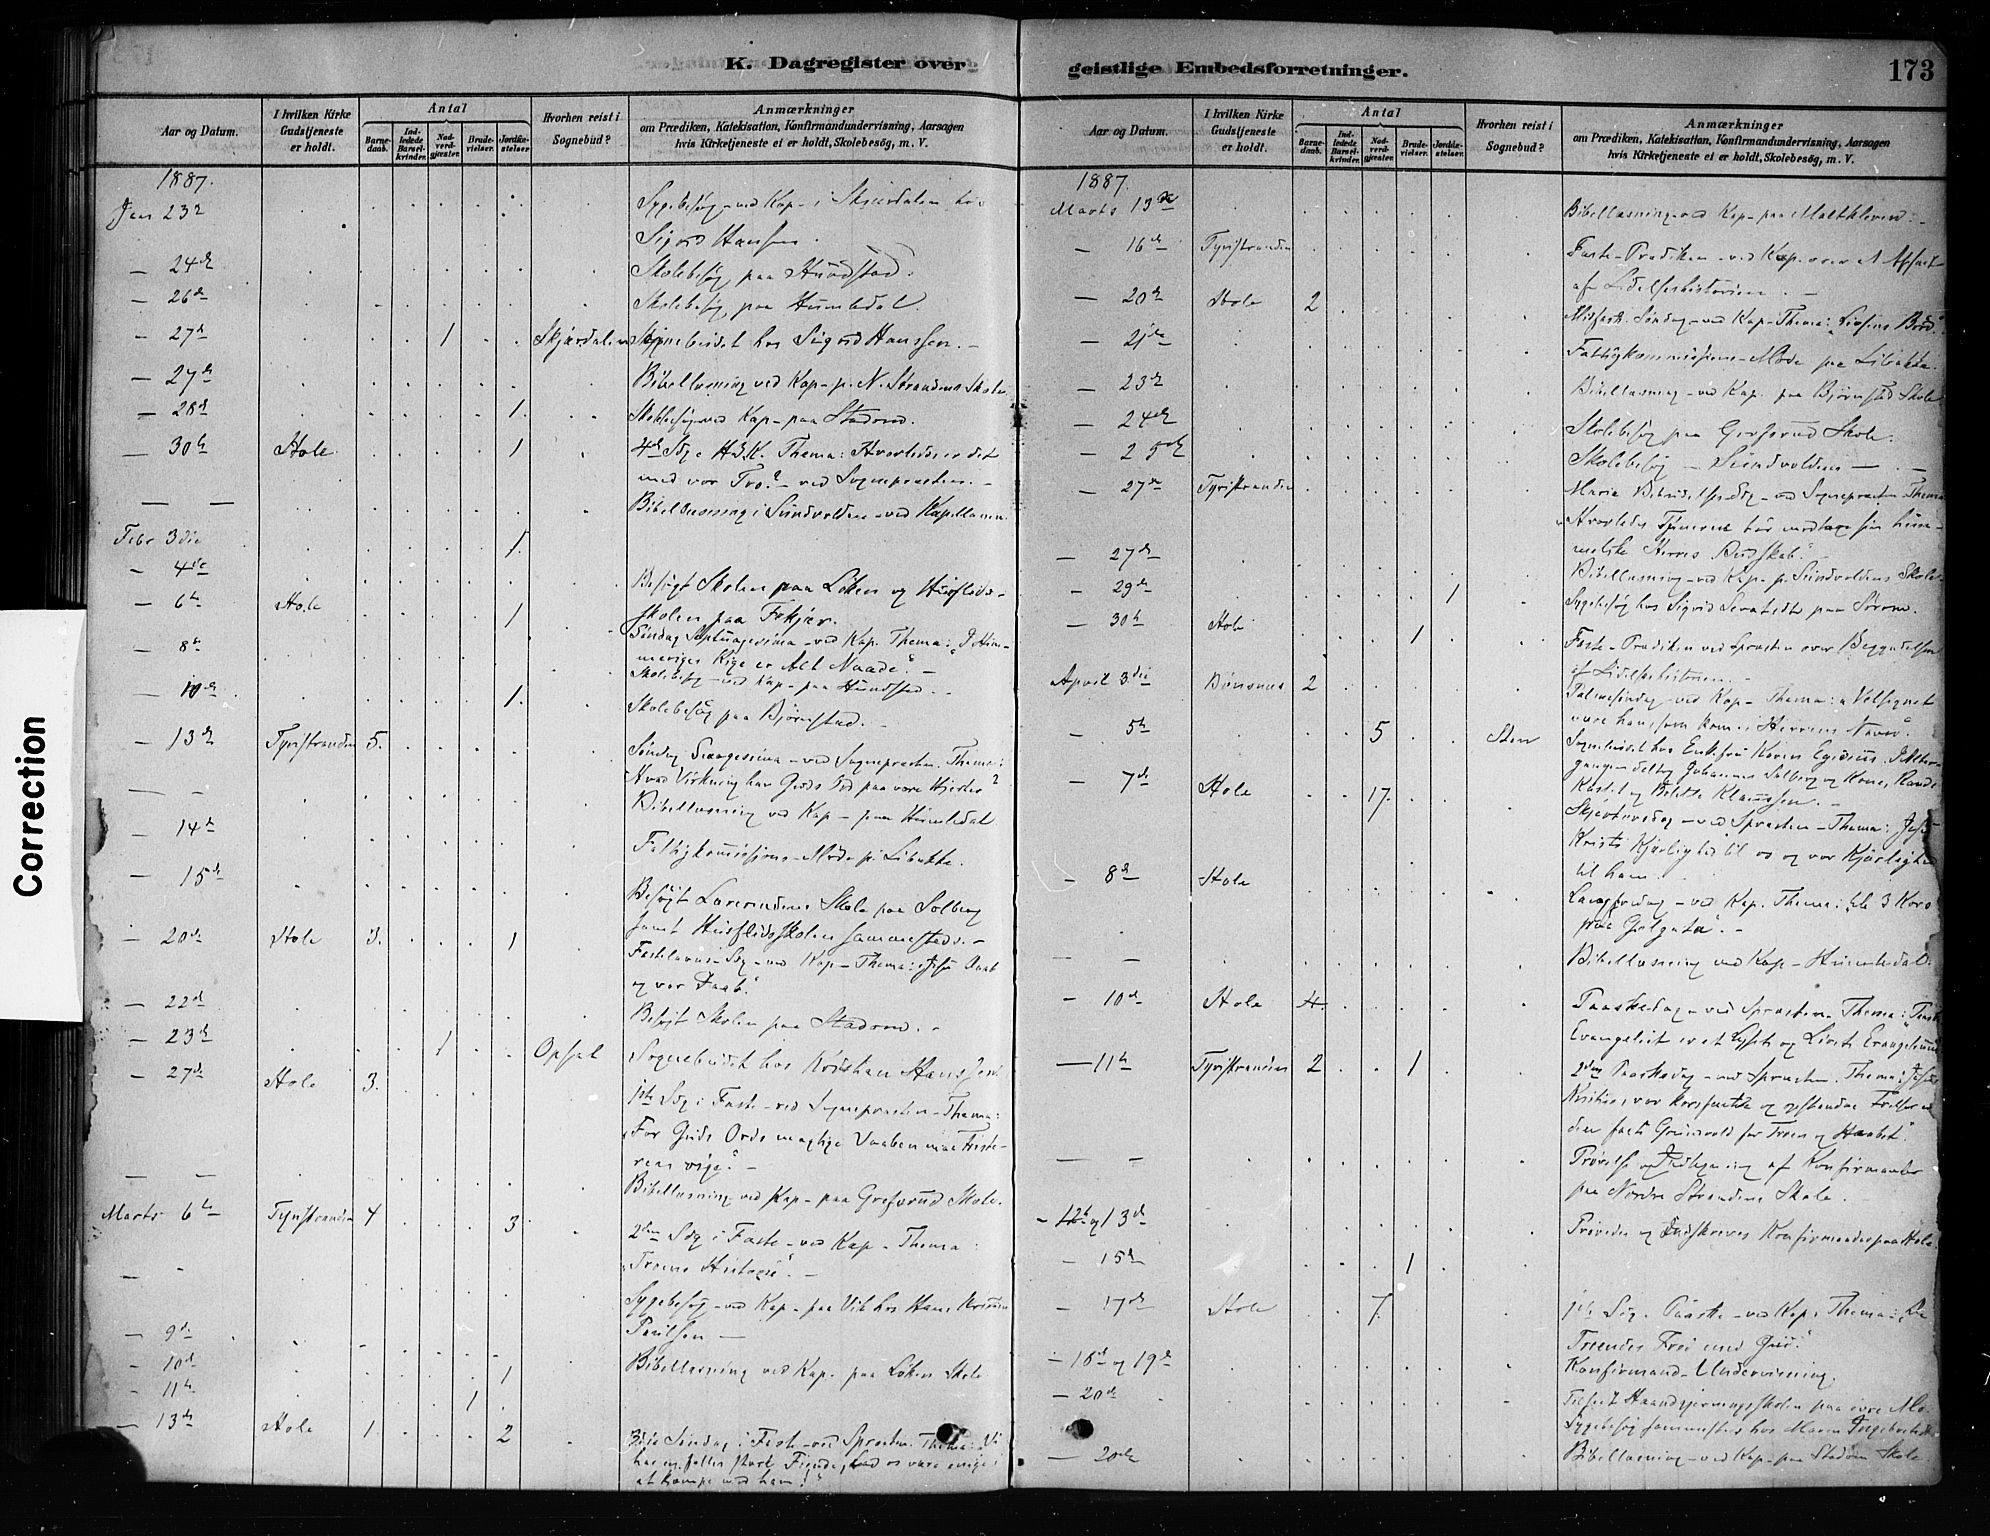 K. Dagregister over geistlige Embedsforretninger.
173
Correction
Aar og Datum.
I hvilken Kirke Gudstjeneste er holdt.
Antal
Barnedaab.
Indledede Barselkvinder.
Nadverdgjester.
Brudevielser.
Jordfæstelser.
Hvorhen reist i Sognebud?
Anmærkninger
om Prædiken, Katekisation, Konfirmandundervisning, Aarsagen
hvis Kirketjeneste ei er holdt, Skolebesøg, m. V.
1887.
Jan 23 Sygebesøg ved Kap. i Skjærdalen hos
Sigrid Hansen.
— 24de Skolebesøg paa Hundstad.
— 26de Skolebesøg paa Humledal.
— 27de 1 Skjærdalen Sognebudet hos Sigrid Hanssen. —
— 27de Bibellæsning ved Kap. p. N. Strandens Skole
— 28de 1. Skolebesøg ved Kap. paa Stadum.
— 30te Hole 1 4de Sdg. e. H.3.K. Thema: Hvorledes er det
med vor Tro? — ved Sognepresten. —
— — Bibellæsning i Sundvolden ved Kapellanen.
Febr 3die 1.
— 4de Besøgt Skolen paa Løken og Husflids-
skolen paa Fekjær.
— 6te Hole 1 Søndag Septuagesima ved Kap. Thema: "I Him-
meriges Rige er Alt Naade". —
— 8de Skolebesøg ved Kap. paa Hundstad. —
— 10de 1. Skolebesøg paa Bjørnstad. —
— 13de Tyristranden 5. Søndag Sexagesima — ved Sognepresten. Thema:
Hvad Virkning har Guds Ord paa vore Hjerter?
— — Bibellæsning ved Kap. — paa Humledal
— 14de Fattigkommissions-Møde på Libakke.
— 15de Besøgt Lærerindens Skole paa Solberg
samt Husflidsskolen sammesteds. —
— 20de Hole 3. 1 Fastelavns-Sdg — ved Kap — Thema: "Jesu Daab
og vor Daab".
— 22de Besøgt Skolen paa Stadum. —
— 23de 1 Opsal Sognebudet hos Kristian Hanssen.
— 27de Hole 3. 1ste Sdg i Faste — ved Sognepresten — Thema:
"For Guds Ords mægtige Vaaben maa Friste-
ren vige". —
— — Bibellæsning ved Kap — paa Gresrud Skole.
Marts 6te Tyristranden 4 3 2den Sdg i Faste — ved Kap — Thema:
"Troens Historie". —
— — Sygebesøg — ved Kap — paa Vik hos Hans Kristian
Paulsen —
— 9de
— 10de 1 Bibellæsning ved Kap. paa Løken Skole
— 11te 1
— 13de Hole 1 2 3die Søndag i Faste — ved Spresten. Thema: "Vi
har en fælles stærk Fiende, lad os være enige i
at kæmpe mod ham!"
Aar og Datum.
I hvilken Kirke Gudstjeneste er holdt.
Antal
Barnedaab.
Indledede Barselkvinder.
Nadverdgjester.
Brudevielser.
Jordfæstelser.
Hvorhen reist i Sognebud?
Anmærkninger
om Prædiken, Katekisation, Konfirmandundervisning, Aarsagen
hvis Kirketjeneste ei er holdt, Skolebesøg, m. V.
1887.
Marts 13de Bibellæsning — ved Kap. paa Maltkleven. —
— 16de Tyristranden Faste-Prædiken — ved Kap. over et Afsnit
af Lidelseshistorien. —
— 20de Hole 2 Midfaste Søndag — ved Kap. Thema: "Livsens Brød".
— 21de Fattigkommissions-Møde paa Libakke.
— 23de Bibellæsning — ved Kap. paa Bjørnstad Skole
— 24de Skolebesøg paa Gresrud Skole.
— 25de Skolebesøg — Sundvolden — —
— 27de Tyristranden Maria Bebudelses Sdg — ved Sognepresten Thema
"Hvorledes Tjeneren bør modtage sin him-
melske Herres Budskab".
— 27de Bibellæsning — ved Kap. p. Sundvoldens Skole
— 29de 1 Sygebesøg hos Sigrid paa Sørum.
— 30te Hole 1 Faste-Prædiken ved Spresten over Begyndelsen
af Lidelseshistorien. —
April 3die Bønsnes 2 Palmesøndag — ved Kap — Thema: "Velsignet
være han, som kom i Herrens Navn".
— 5te 5 Sten Sognebudet hos Enkefru Karen Egidius. I Alter-
gangen deltog Johannes Solberg og Kone, Randi
Kastet og Beletthe Klaussen. —
— 7de Hole 17. Skjærtorsdag — ved Spresten — Thema: Jesu
Kristi Kjærlighed til os og vor Kjærlighed
til ham.
— 8de Hole Langfredag — ved Kap. Thema: "de 3 Kors
paa Golgata". —
— — Bibellæsning ved Kap — Humledal.
— 10de Hole 4. Paaskedag — ved Spresten. Thema: "Paaske
Evangeliet er et Lysets og Livets Evangelium
— 11te Tyristranden 2 1 2den Paaskedag — ved Spresten. Thema: "Jesus
Kristus, vor korsfæstede og opstandne Frelser er
den faste Grundvold for Troen og Haabet".
— — Prøvelse og Indtegning af Konfirmander
paa Nordre Strandens Skole. —
— 12te og 13de Prøvedes og Indskreves Konfirmander paa Hole.
— 15de 1
— 17de Hole 7. 1ste Sdg. e. Paaske — ved Kap. Thema: "De
Troendes Fred med Gud".
— 18de og 19de Konfirmand-Undervisning.
— 20de Tilset Haandgjerningsskolen paa øvre Mo.
Sygebesøg sammesteds hos Maren Ingebretsdtr
— 20de Bibellæsning — ved Kap. paa Stadum Skole